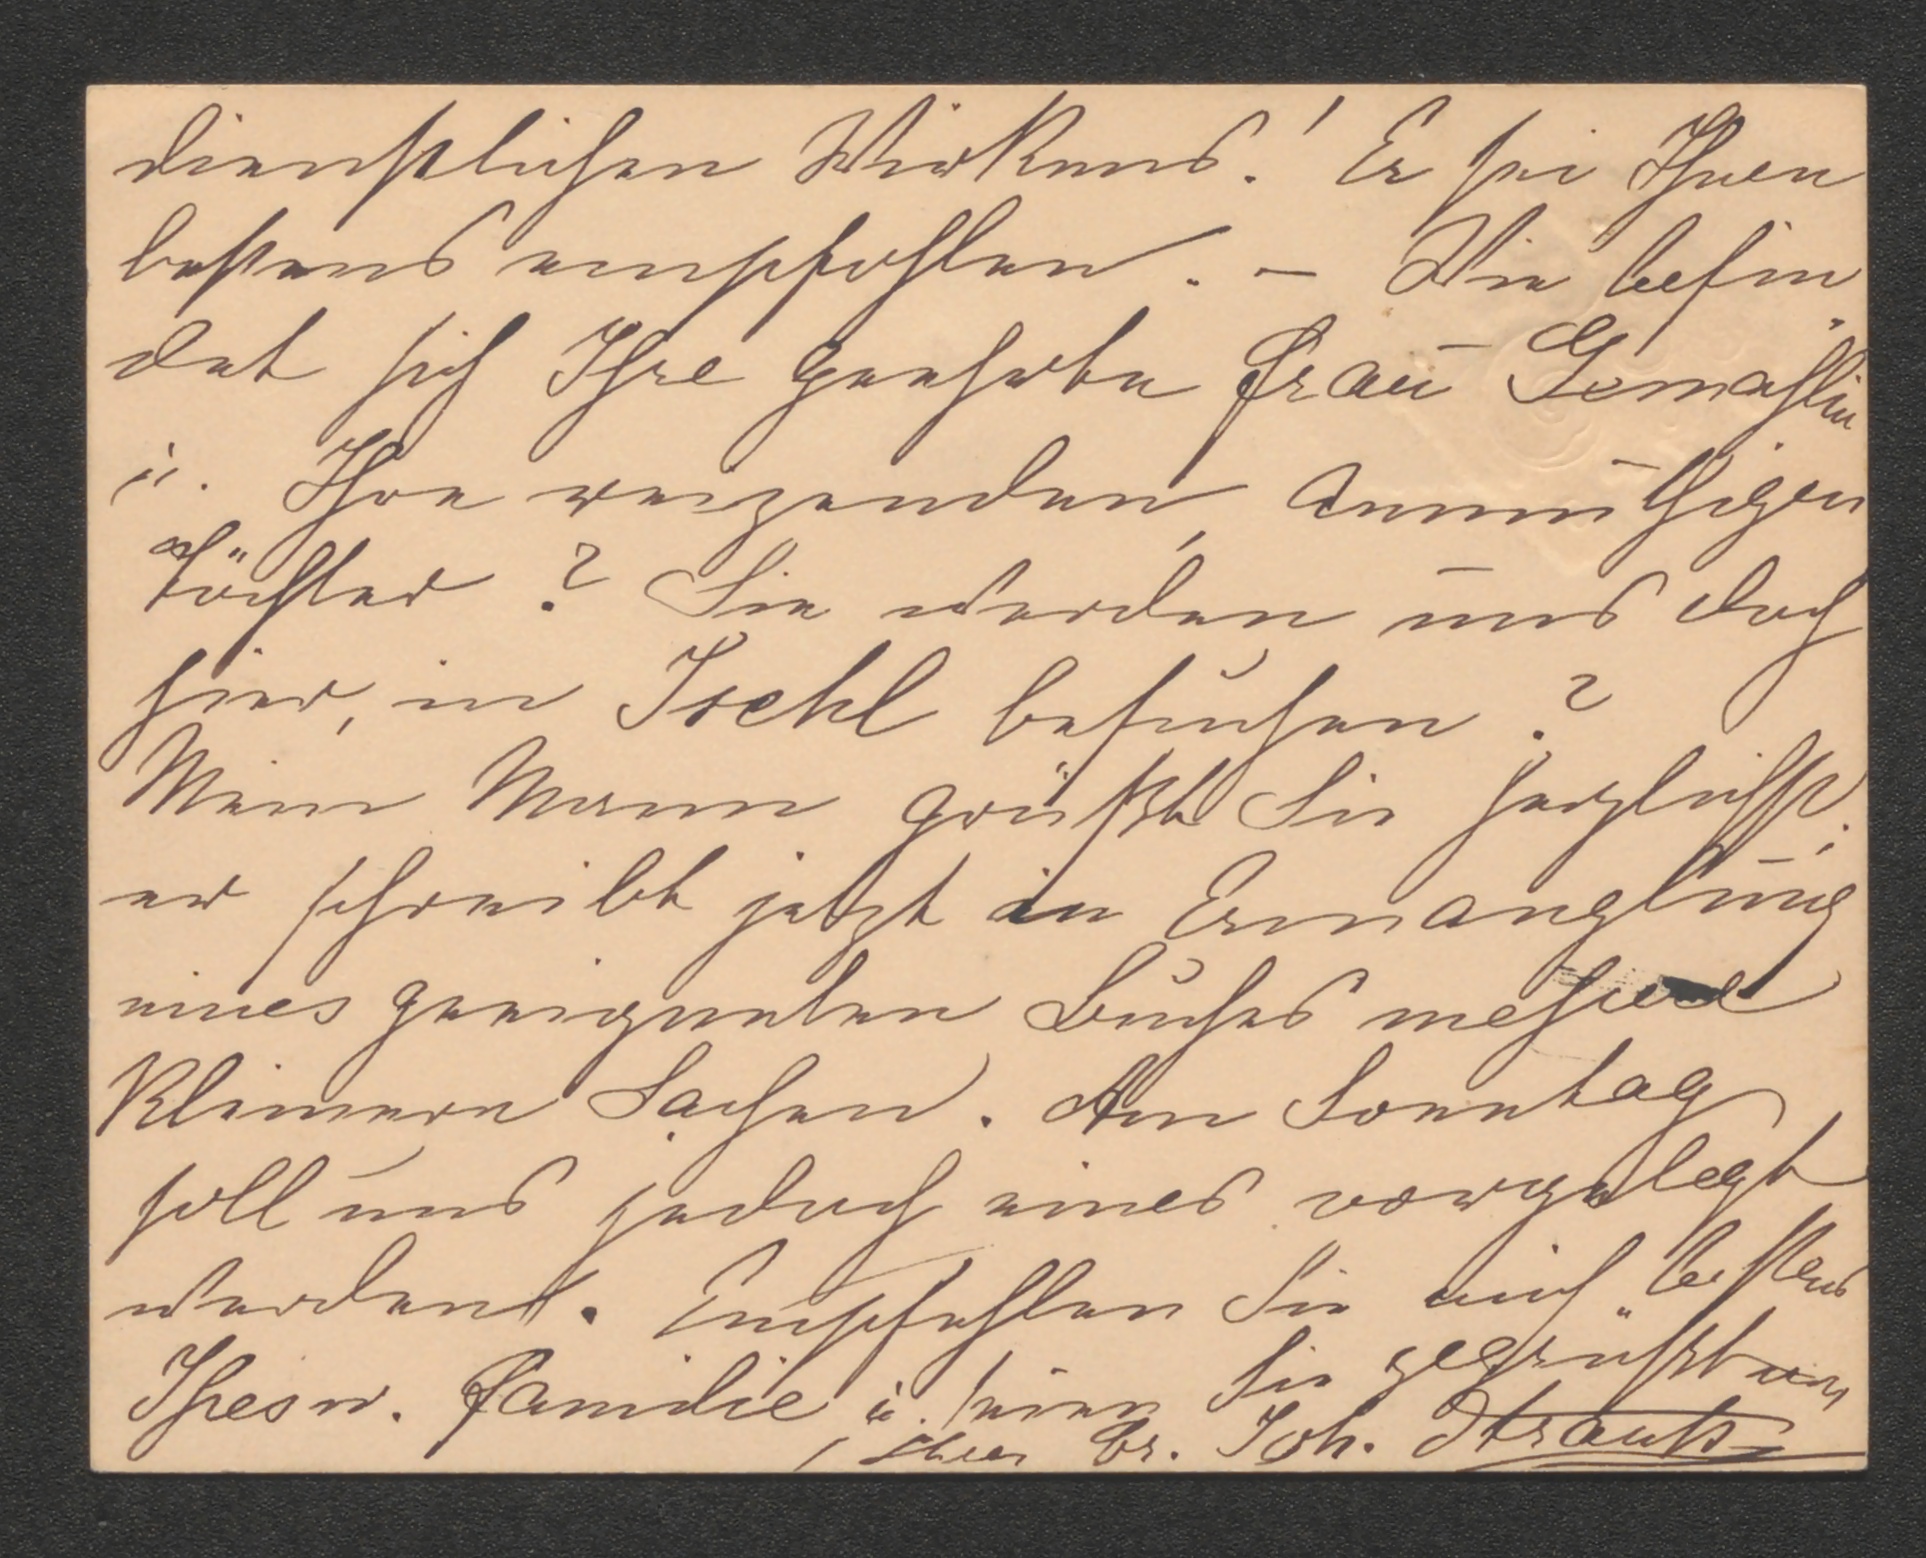 dienstlichen Wirkens! Er sei Ihnen
bestens empfohlen. – Wie befin
det sich Ihre geehrte Frau Gemahlin
u. Ihre reizenden, anmuthigen
Töchter? Sie werden uns doch
hier, in Ischl besuchen?
Mein Mann grüßt Sie herzlichst,
er schreibt jetzt in Ermanglung
eines geeigneten Buches mehrere
kleinere Sachen. Am Sonntag
soll uns jedoch eines vorgelegt
werden. Empfehlen Sie mich bestens
Ihrer w. Familie u. seien Sie gegrüßt von
Ihrer Joh. Strauß